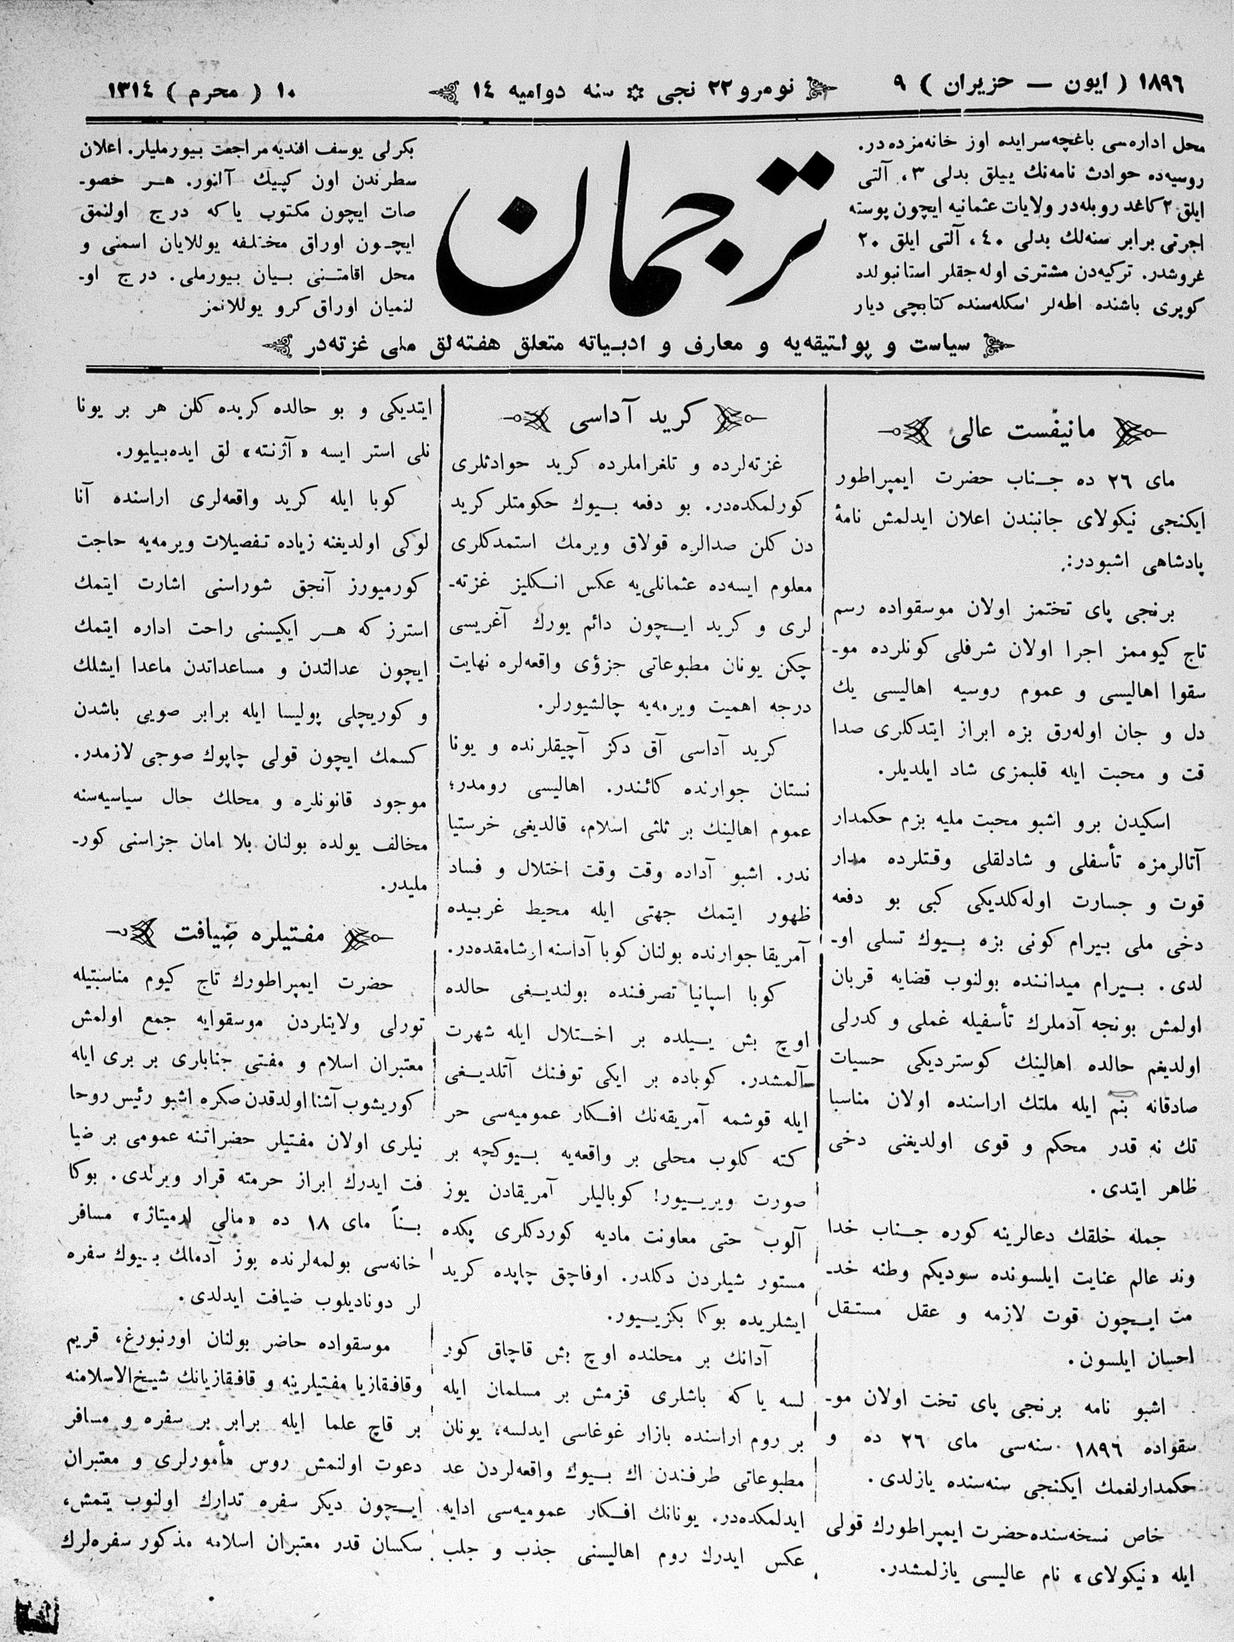 ١٨٩٦ ( ايون — حزيران ) ٩
نومرو ٢٢ نجى ✡ سنه دواميه ١٤
١٠ ( محرم ) ١٣١٤
محل اداره‌سى باغچه‌سرايده اوز خانه‌مزده‌در.
روسيه‌ده حوادث نامه‌نك ييللق بدلى ٣، آلتى
ايلق ٢ كاغد روبله‌در ولايات عثمانيه ايچون پوسته
اجرتى برابر سنه‌لك بدلى ٤٠، آلتى ايلق ٢٠
غروشدر. تركيه‌دن مشترى اوله‌جقلر استانبولده
كوپرى باشنده اطه‌لر اسكله‌سنده كتابچى ديار
ترجمان
بكرلى يوسف افنديه مراجعت بيورمليلر. اعلان
سطرندن اون كپيك آلنور. هر خصو-
صات ايچون مكتوب ياكه درج اولنمق
ايچون اوراق مختلفه يوللايان اسمنى و
محل اقامتنى بيان بيورملى. درج او-
لنميان اوراق كرو يوللانمز
سياست و پولتيقه‌يه و معارف و ادبياته متعلق هفته‌لق ملى غزته‌در
مانيفست عالى
ماى ٢٦ ده جناب حضرت ايمپراطور
ايكنجى نيكولاى جانبندن اعلان ايدلمش نامۀ
پادشاهى اشبودر:
برنجى پاى تختمز اولان موسقواده رسم
تاج كيوممز اجرا اولان شرفلى كونلرده مو-
سقوا اهاليسى و عموم روسيه اهاليسى يك
دل و جان اوله‌رق بزه ابراز ايتدكلرى صدا
قت و محبت ايله قلبمزى شاد ايلديلر.
اسكيدن برو اشبو محبت مليه بزم حكمدار
آتالرمزه تأسفلى و شادلقلى وقتلرده مدار
قوت و جسارت اوله‌كلديكى كبى بو دفعه
دخى ملى بيرام كونى بزه بيوك تسلى او-
لدى. بيرام ميداننده بولنوب قضايه قربان
اولمش بونجه آدملرك تأسفيله غملى و كدرلى
اولديغم حالده اهالينك كوسترديكى حسيات
صادقانه بنم ايله ملتك اراسنده اولان مناسبا
تك نه قدر محكم و قوى اولديغنى دخى
ظاهر ايتدى.
جمله خلقك دعالرينه كوره جناب خدا
وند عالم عنايت ايلسونده سوديكم وطنه خد-
مت ايچون قوت لازمه و عقل مستقل
احسان ايلسون.
اشبو نامه برنجى پاى تخت اولان مو-
سقواده ١٨٩٦ سنه‌سى ماى ٢٦ ده و
حكمدارلغمك ايكنجى سنه‌سنده يازلدى.
خاص نسخه‌سنده حضرت ايمپراطورك قولى
ايله «نيكولاى» نام عاليسى يازلمشدر.
كريد آداسى
غزته‌لرده و تلغراملرده كريد حوادثلرى
كورلمكده‌در. بو دفعه بيوك حكومتلر كريد
دن كلن صدالره قولاق ويرمك استمدكلرى
معلوم ايسه‌ده عثمانلى‌يه عكس انكليز غزته-
لرى و كريد ايچون دائم يورك آغريسى
چكن يونان مطبوعاتى جزؤى واقعه‌لره نهايت
درجه اهميت ويرمه‌يه چالشيورلر.
كريد آداسى آق دكز آچيقلرنده و يونا
نستان جوارنده كائندر. اهاليسى رومدر؛
عموم اهالينك بر ثلثى اسلام، قالديغى خرستيا
ندر. اشبو آداده وقت وقت اختلال و فساد
ظهور ايتمك جهتى ايله محيط غربيده
آمريقا جوارنده بولنان كوبا آداسنه ارشامقده‌در.
كوبا اسپانيا تصرفنده بولنديغى حالده
اوچ بش ييلده بر اختلال ايله شهرت
آلمشدر. كوباده بر ايكى توفنك آتلديغى
ايله قوشمه آمريقه‌نك افكار عموميه‌سى حر
كته كلوب محلى بر واقعه‌يه بيوكچه بر
صورت ويرييور! كوباليلر آمريقادن يوز
آلوب حتى معاونت ماديه كوردكلرى پكده
مستور شيلردن دكلدر. اوفاچق چاپده كريد
ايشلريده بوكا بكزييور.
آدانك بر محلنده اوچ بش قاچاق كور
لسه ياكه باشلرى قزمش بر مسلمان ايله
بر روم اراسنده بازار غوغاسى ايدلسه، يونان
مطبوعاتى طرفندن اك بيوك واقعه‌لردن عد
ايدلمكده‌در. يونانك افكار عموميه‌سى ادايه
عكس ايدرك روم اهاليسنى جذب و جلب
ايتديكى و بو حالده كريده كلن هر بر يونا
نلى استر ايسه «آژنته» لق ايده‌بيليور.
كوبا ايله كريد واقعه‌لرى اراسنده آنا
لوكى اولديغنه زياده تفصيلات ويرمه‌يه حاجت
كورميورز آنجق شوراسنى اشارت ايتمك
استرز كه هر ايكيسنى راحت اداره ايتمك
ايچون عدالتدن و مساعداتدن ماعدا ايشلك
و كوريچلى پوليسا ايله برابر صويى باشدن
كسمك ايچون قولى چاپوك صوجى لازمدر.
موجود قانونلره و محلك حال سياسيه‌سنه
مخالف يولده بولنان بلا امان جزاسنى كور-
مليدر.
مفتيلره ضيافت
حضرت ايمپراطورك تاج كيوم مناسبتيله
تورلى ولايتلردن موسقوايه جمع اولمش
معتبران اسلام و مفتى جنابلرى بر برى ايله
كوريشوب آشنا اولدقدن صكره اشبو رئيس روحا
نيلرى اولان مفتيلر حضراتنه عمومى بر ضيا
فت ايدرك ابراز حرمته قرار ويرلدى. بوكا
بناً ماى ١٨ ده «مالى ارميتاژ» مسافر
خانه‌سى بولمه‌لرنده يوز آدملك بيوك سفره
لر دوناديلوب ضيافت ايدلدى.
موسقواده حاضر بولنان اورنبورغ، قريم
وقافقازيا مفتيلرينه و قافقازيانك شيخ‌الاسلامنه
بر قاچ علما ايله برابر بر سفره و مسافر
دعوت اولنمش روس مأمورلرى و معتبران
ايچون ديكر سفره تدارك اولنوب يتمش،
سكسان قدر معتبران اسلامه مذكور سفره‌لرك